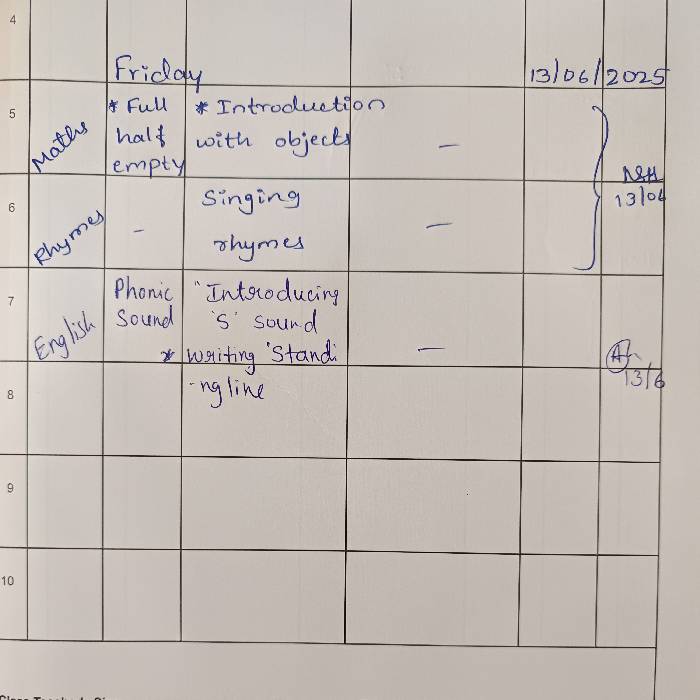 4
Friday 13/06/2025
5 Maths * Full * Introduction
half with objects —
empty
6 Rhymes - Singing — 13/06
rhymes
7 English Phonic "Introducing
Sound 's' sound
* writing 'Standi —
13/6
8 -ng line
9
10